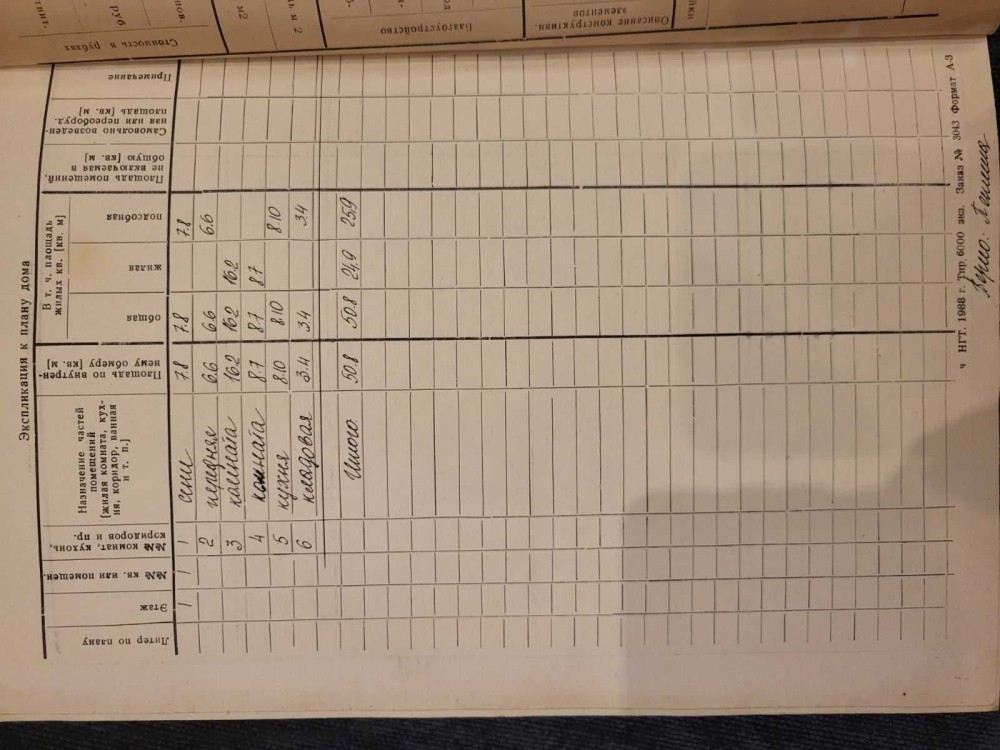 Стоимость в рублях
руб
м2
ь м 2
Благоустройство
Описание конструктивн.
элементов
Экспликация к плану дома
Литер по плану
Этаж
№№ кв. или помещен.
№№ комнат, кухонь,
коридоров и пр.
Назначение частей
помещений
[жилая комната, кух-
ня, коридор, ванная
и т. п.]
Площадь по внутрен-
нему обмеру [кв. м]
В т. ч. площадь
жилых кв. [кв. м]
общая
жилая
подсобная
Площадь помещений,
не включаемая в
общую [кв. м]
Самовольно возведен-
ная или переоборуд.
площадь [кв. м]
Примечание
1 1 1 сени 7.8 7.8 7.8
2 передняя 6.6 6.6 6.6
3 комната 16.2 16.2 16.2
4 комната 8.7 8.7 8.7
5 кухня 8.10 8.10 8.10
6 кладовая 3.4 3.4 3.4
Итого 50.8 50.8 24.9 25.9
ч НГТ. 1988 г. Тир. 6000 экз. Заказ № 3043 Формат А-3